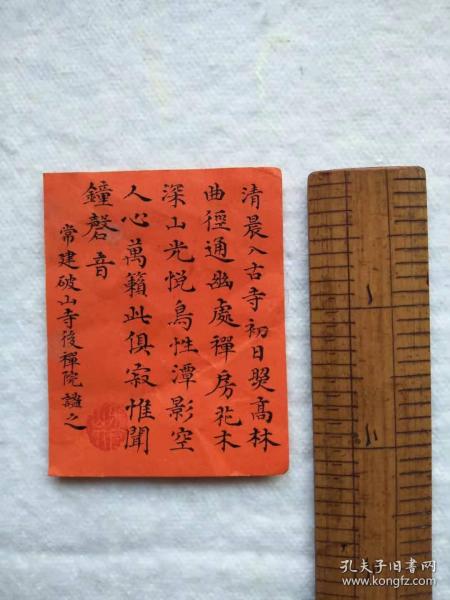 清晨入古寺初日煚高林
曲徑通幽處禪房花木
深山光悦鳥性潭影空
人心萬籟此俱寂惟聞
鐘磬音
常建破山寺後禪院謐之
孔夫子旧书网
www.kongfz.com